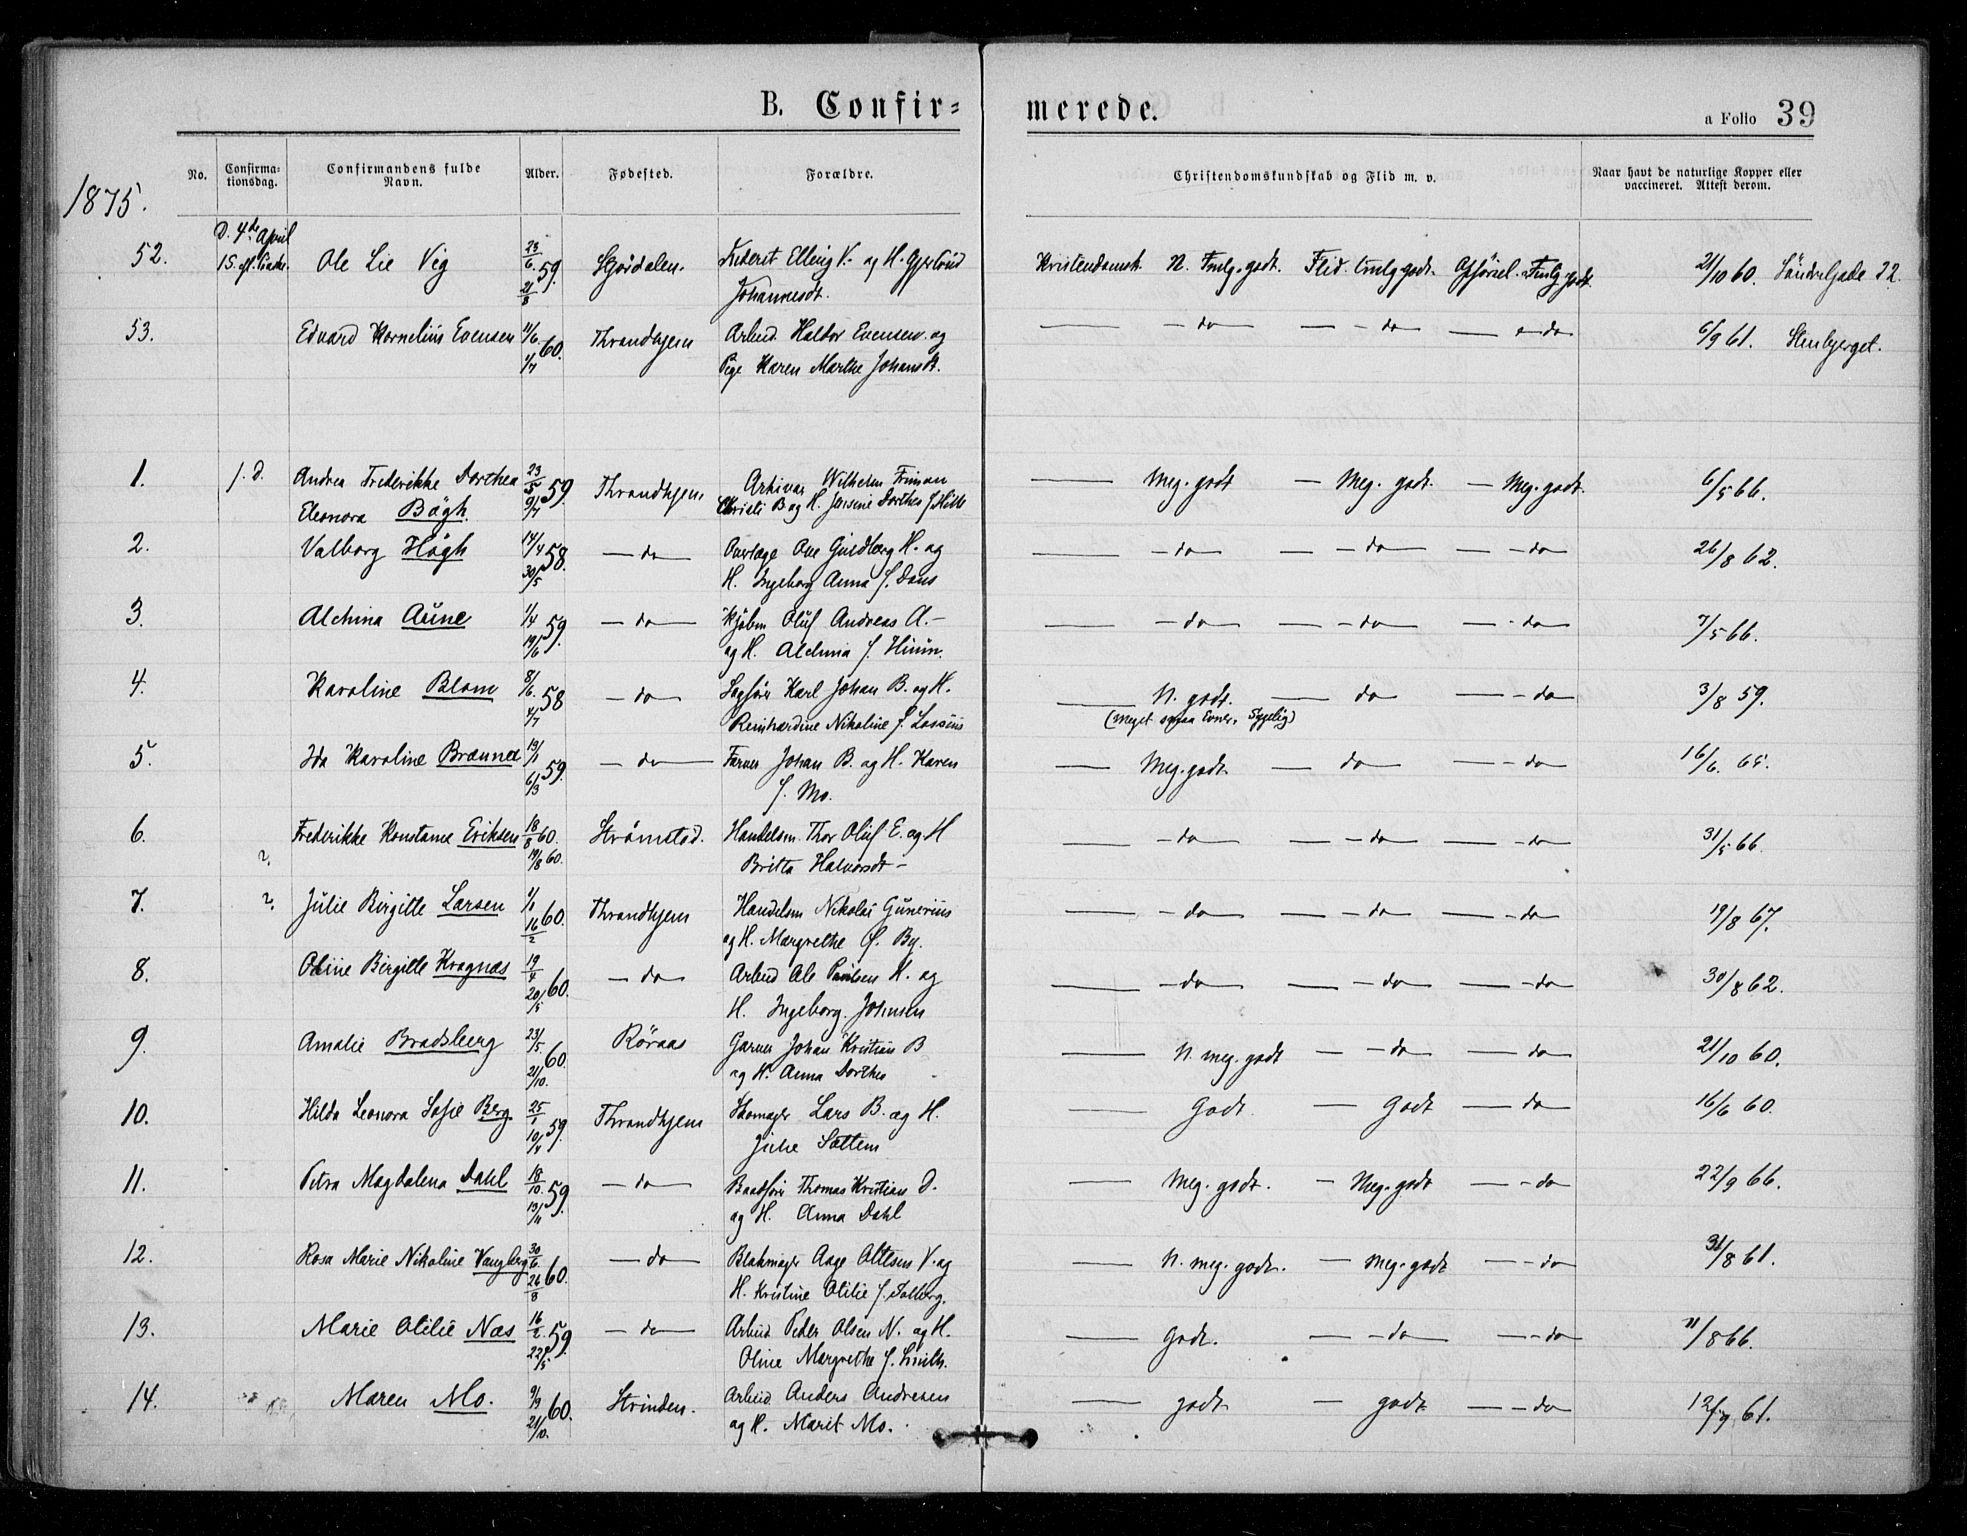 B. Confir=
merede.
a Folio 39
No. Confirma-tionsdag. Confirmandens fulde Navn. Alder. Fødested. Forældre. Christendomskundskab og Flid m. v. Naar havt de naturlige Kopper eller vaccineret. Attest derom.
1875.
D. 4de April
52. Ole Lie Vig 23/6 59. 21/8 Elling V. og H. Gjertrud Kristendomsk. N. Tmlg. godt. Flid. tmlg godt. Opførsel Tmlg godt. 21/10 60. Søndregade 22.
Johannesdt.
53. Edvard Kornelius Evensen 11/6 60. 1/7 Throndhjem Arbeid. Haldor Evensen og — do — do — do 6/9 61. Stenbjerget.
Pige Karen Marthe Johansdt.
1. s. D. Andrea Frederikke Dorthea 23/5 59. 9/7 Throndhjem Arkivar Wilhelm Friman — Meg. godt — Meg. godt. — Meg. godt. 6/5 66.
Eleonora Bøgh. Christi B og H. Jensine Dorthea f.
2. Valborg Høgh 14/4 58. 30/5 — do Overlæge Ove Guldberg H. og — do — do — do 26/8 62.
H. Ingeborg Anna f. Dons
3. Alchina Aune 1/4 59. 19/6 — do Kjøbm Oluf Andreas A. — — do — do — do 7/5 66.
og H. Alchina f.
4. Karoline Blom 8/6. 58 4/7 — do Sagfører Karl Johan B. og H. — N. godt. — do — do 3/8 59.
Reinhardine Nikoline f. Lossius (Meget smaa Evner, Sygelig)
5. Ida Karoline Brænne 19/1 59. 6/3 — do Farver Johan B. og H. Karen — Meg. godt — do — do 16/6. 65.
f. Mo.
6. Frederikke Konstanse Eriksen 18/8 60. Strømstad. Handelsm. Thor Oluf E. og H — do — do — do 31/5 66.
2. 19/8 60. Britta Halvorsdt —
7. 2. Julie Birgitte Larsen 1/1 60. 16/2 Throndhjem Handelsm Nikolai Gunerius — do — do — do 19/8 67.
og H. Margrethe f. By.
8. Oline Birgitte Kragnæs 19/4 60. 20/5 — do Arbeid Ole Paulsen K. og — do — do — do 30/8 62.
H. Ingeborg. Johnsen
9. Amalie Bradsberg 23/5. 60. 21/10. Røraas Garver Johan Kristian B — N. meg. godt — do — do 21/10 60.
og H. Anna Dorthea
10. Hilda Leonora Sofie Berg 25/1 59. 10/4 Throndhjem Skomager Lars B. og H. — Godt. — Godt — do 16/6 60.
Sættem
11. Petra Magdalena Dahl 18/10. 59. — do Baadfører Thomas Kristian D. — Meg. godt. — Meg. godt — do 22/9 66.
og H. Anna Dahl
12. Rosa Marie Nikoline Vangberg 30/6. 60. 26/8 — do Blokmager Aage Ottesen V. og — N. meg. godt. — Meg. godt — do 31/8 61.
H. Kristine Otilie f. Solberg.
13. Marie Otilie Næs 16/2. 59. 22/5 — do Arbeid Peder Olsen N. og H. — Godt. — do — do 11/8 66.
Oline Margrethe f. Smith.
14. Maren Mo. 9/9 60. 21/10. Strinden. Arbeid. Anders Andresen — godt — godt — do 12/9 61.
og H. Marit Mo.